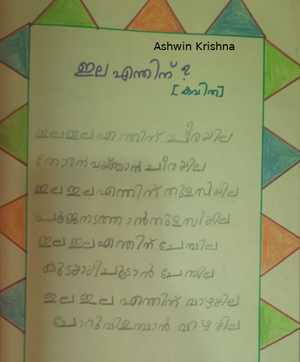 Ashwin Krishna
ഇല എന്തിന് ?
[കവിത]
ഇല ഇല എന്തിന് ചീരയില
തോരൻ വയ്ക്കാൻ ചീരയില
ഇല ഇല എന്തിന് തുളസിയില
പൂജ നടത്താൻ തുളസിയില
ഇല ഇല എന്തിന് ചേമ്പില
കുടയായി ചൂടാൻ ചേമ്പില
ഇല ഇല എന്തിന് വാഴയില
ചോറുവിളമ്പാൻ വാഴയില